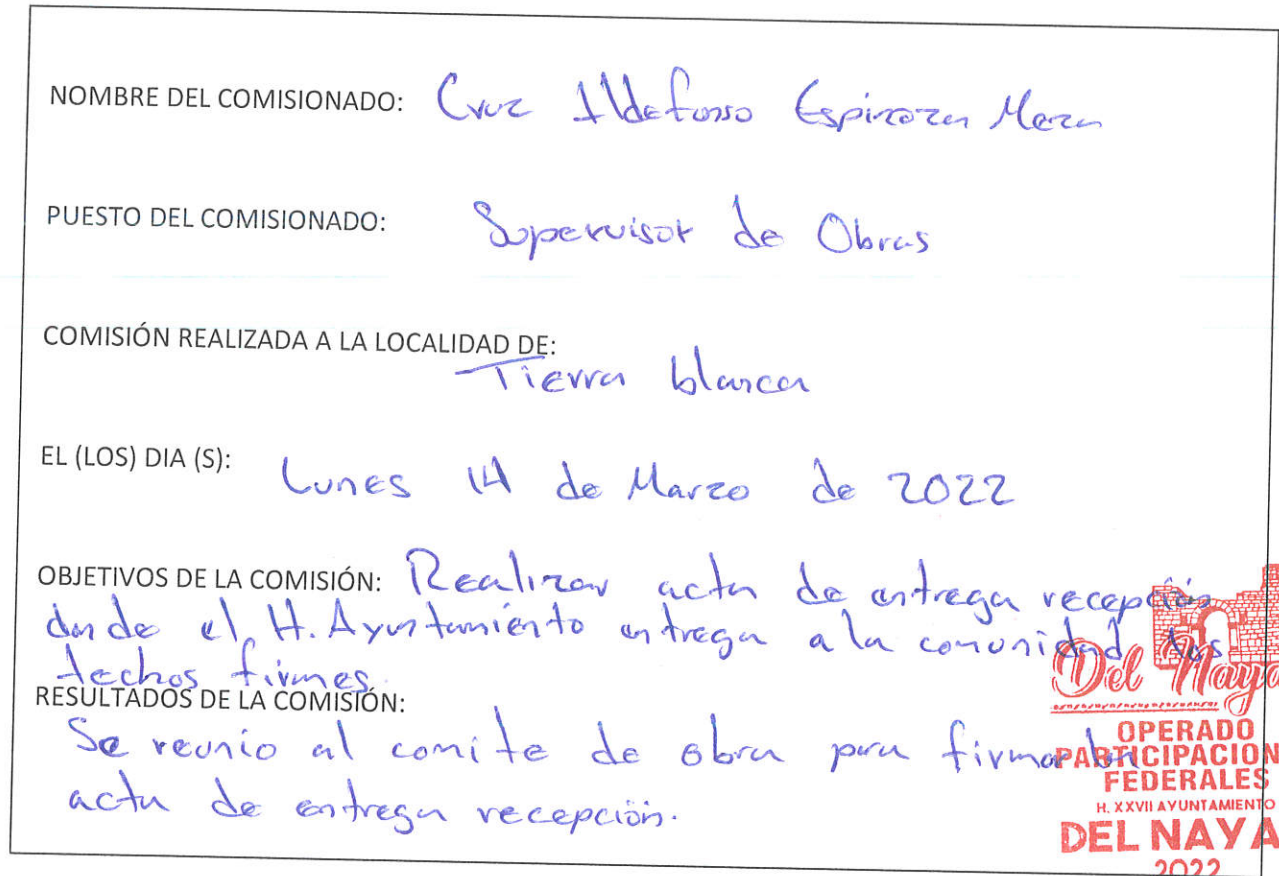 NOMBRE DEL COMISIONADO: Cruz Ildefonso Espinoza Meza
PUESTO DEL COMISIONADO: Supervisor de Obras
COMISIÓN REALIZADA A LA LOCALIDAD DE:
Tierra blanca
EL (LOS) DIA (S): Lunes 14 de Marzo de 2022
OBJETIVOS DE LA COMISIÓN: Realizar acta de entrega recepción
donde el H. Ayuntamiento entrega a la comunidad los
techos firmes.
RESULTADOS DE LA COMISIÓN:
Se reunio al comite de obra para firmar la
acta de entrega recepción.
Del Naya
OPERADO
PARTICIPACION
FEDERALES
H. XXVII AYUNTAMIENTO
DEL NAYA
2022